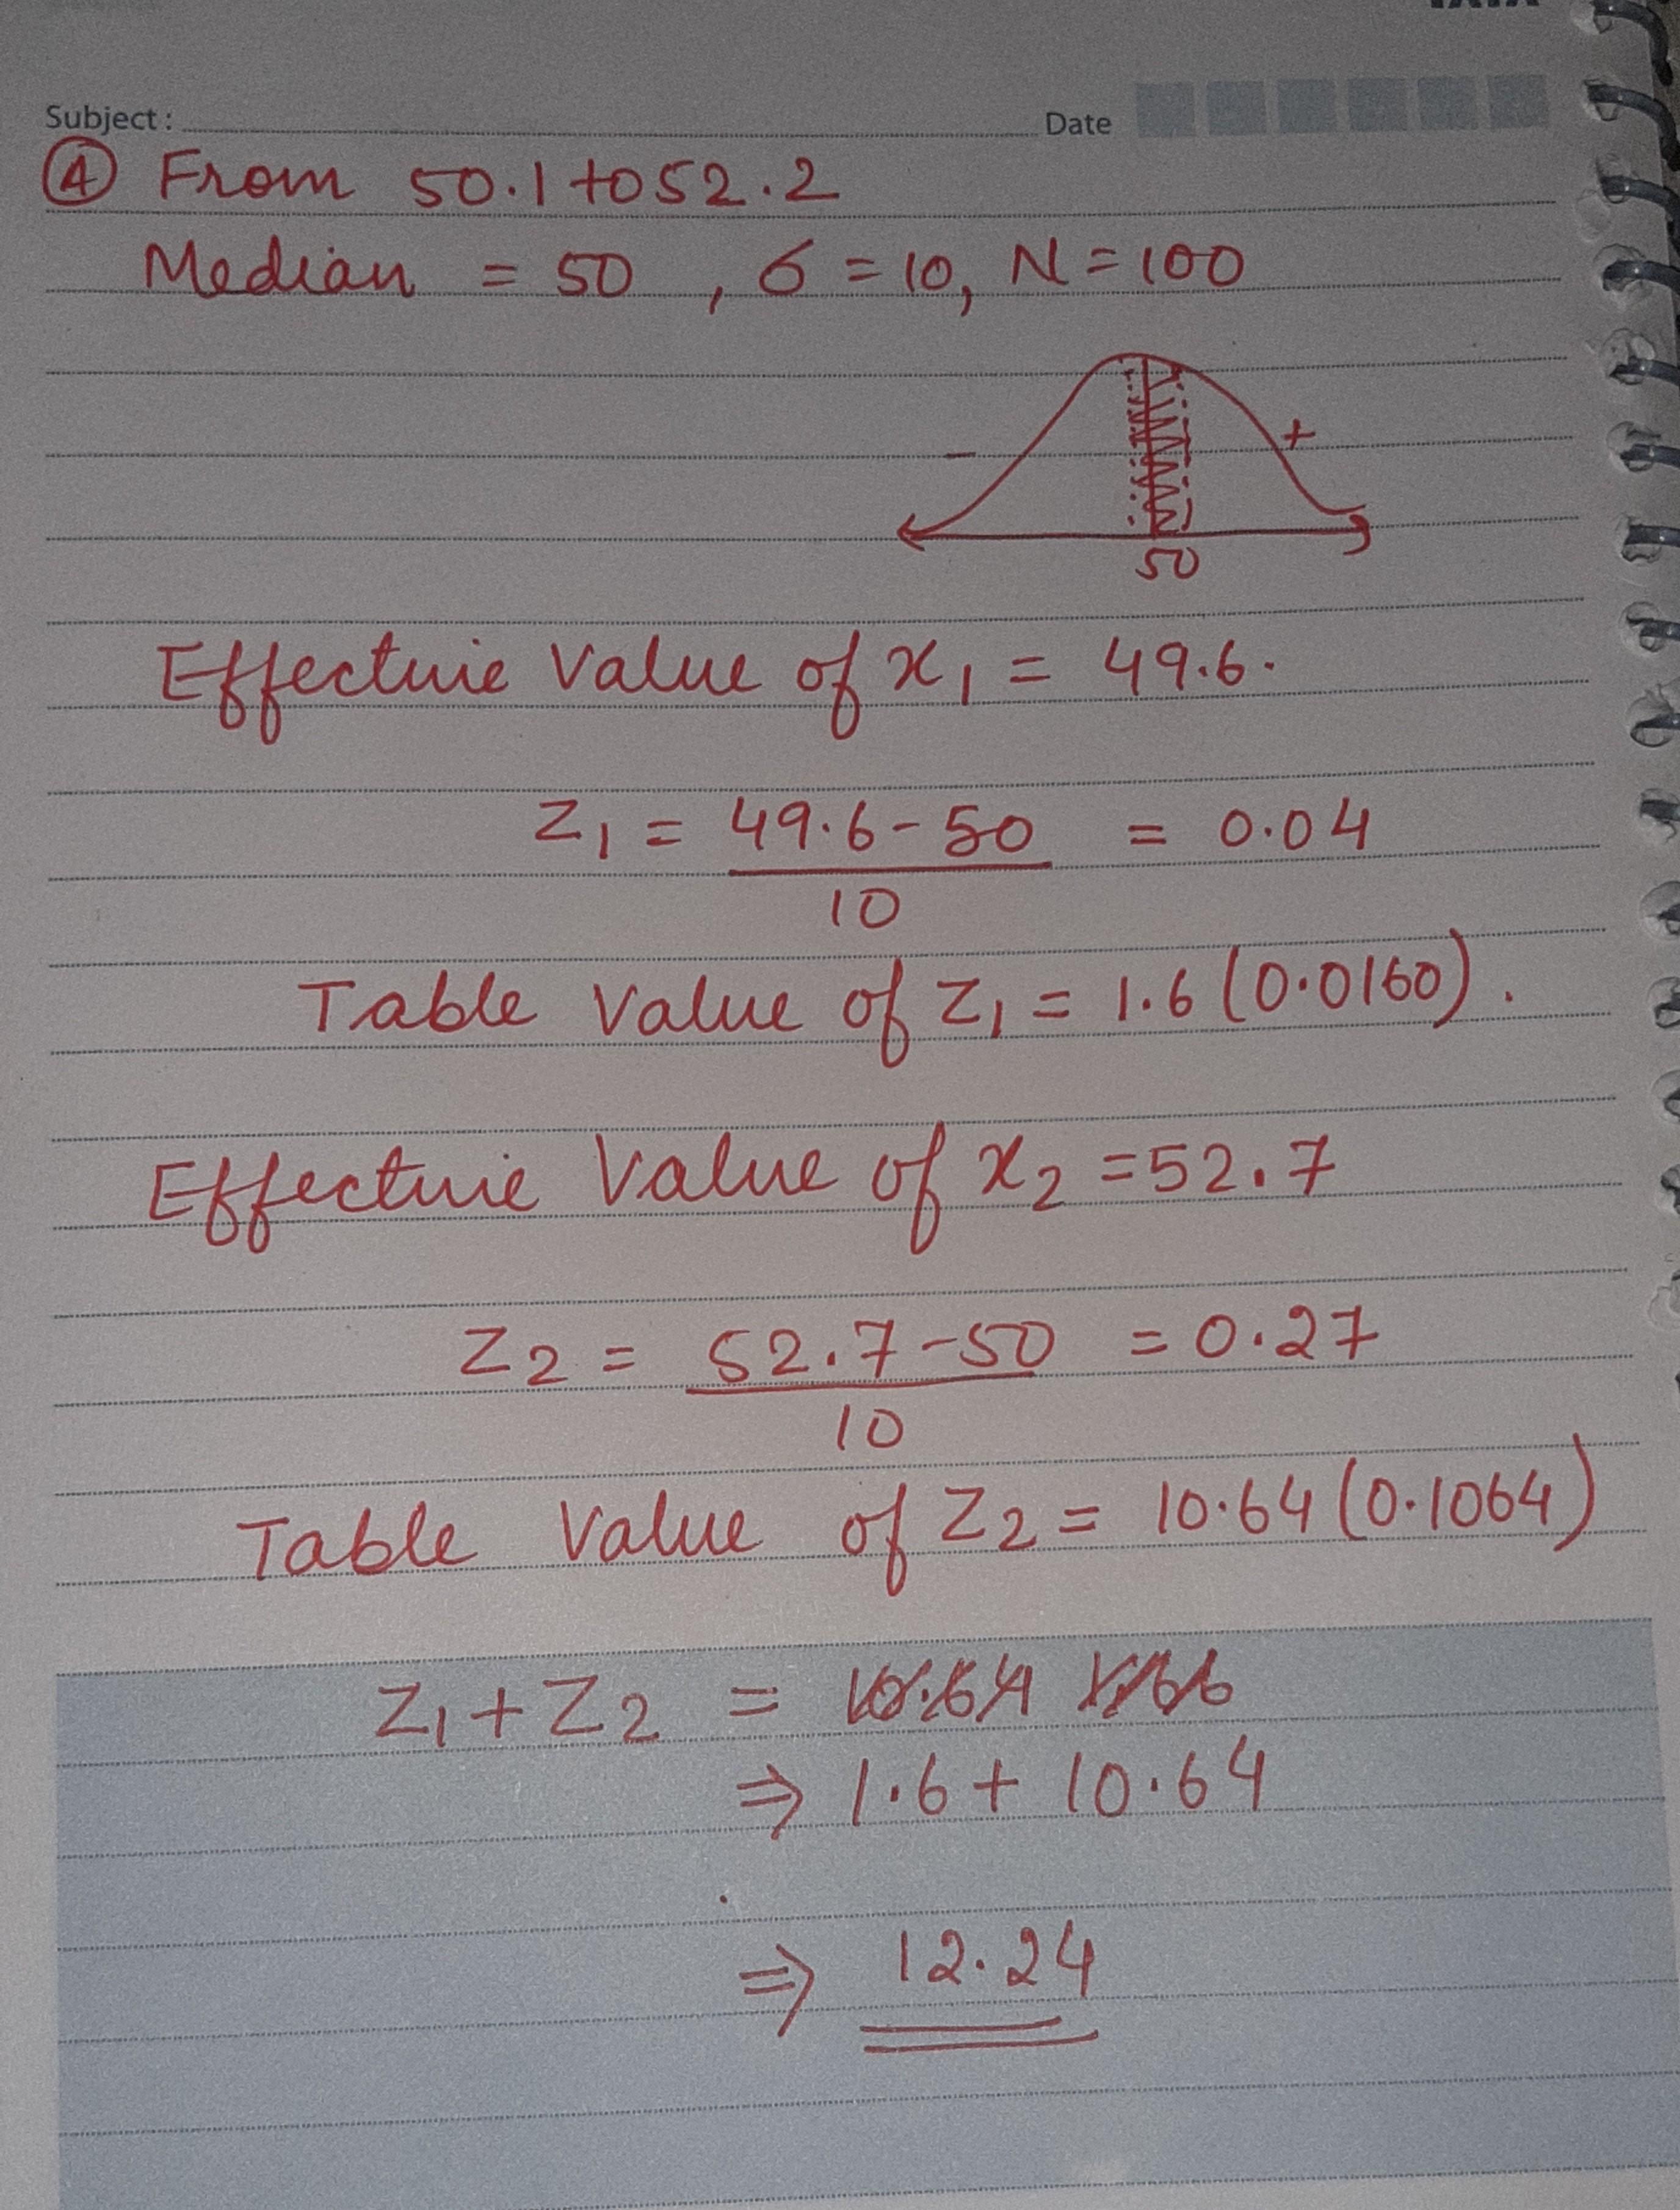 Subject :
Date
④ From 50.1 to 52.2
Median = 50 , σ = 10, N = 100
- +
50
Effective Value of x₁ = 49.6.
Z₁ = 49.6 - 50 = 0.04
10
Table Value of Z₁ = 1.6 (0.0160).
Effective Value of x₂ = 52.7
Z₂ = 52.7 - 50 = 0.27
10
Table Value of Z₂ = 10.64 (0.1064)
Z₁ + Z₂ =
⇒ 1.6 + 10.64
⇒ 12.24